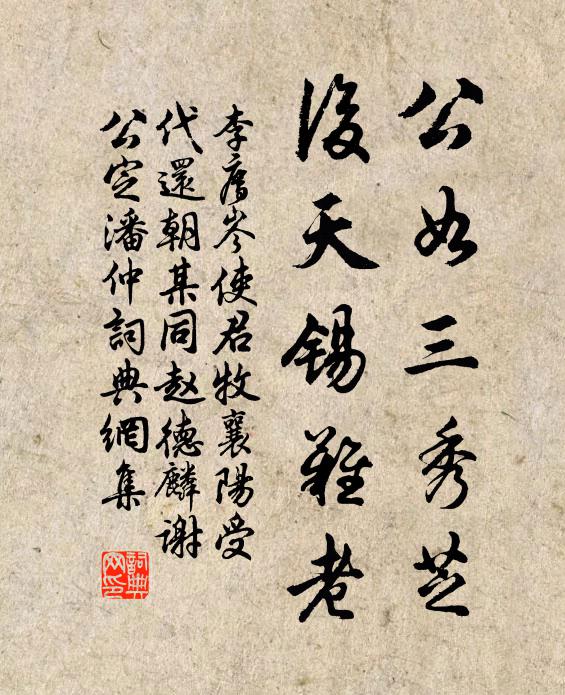 公如三秀芝
後天錫難老
李廌岑使君牧襄陽受
代還朝某同趙德麟謝
公定潘仲詞典網集
詞典網印